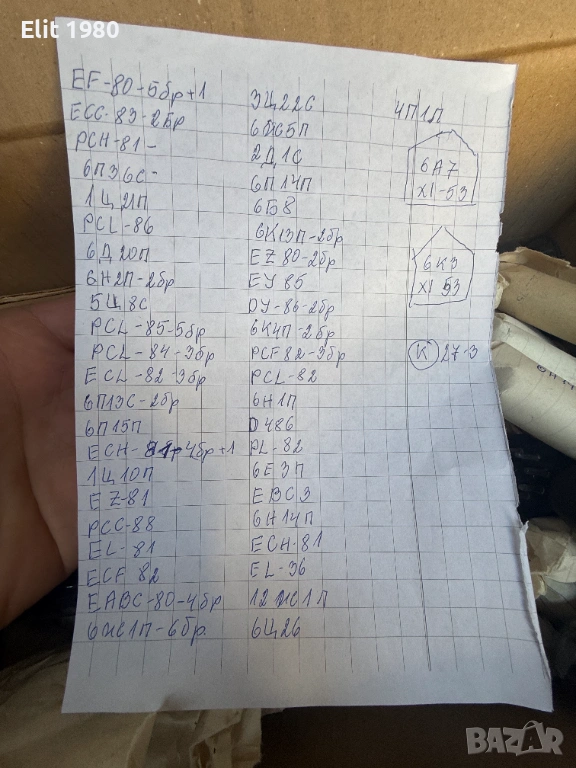 Elit 1980
EF-80-5бр+1
ECC-83-2бр
PCH-81-
6П36С-
1Ц21П
PCL-86
6Д20П
6Н2П-2бр
5Ц8С
PCL-85-5бр
PCL-84-3бр
ECL-82-3бр
6П13С-2бр
6П15П
ECH-81-4бр+1
1Ц10П
EZ-81
PCC-88
EL-81
ECF 82
EABC-80-4бр
6Ж1П-6бр.
3Ц22С
6Ж5П
2Д1С
6П14П
6Б8
6К13П-2бр
EZ 80-2бр
EY 85
DY-86-2бр
6К4П-2бр
PCF 82-3бр
PCL-82
6Н1П
D486
PL-82
6Е3П
EBC3
6Н14П
ECH-81
EL-36
12Ж1Л
6Ц26
4П1Л
6А7
XI-53
6К3
XI 53
К 27-3
BAZAR